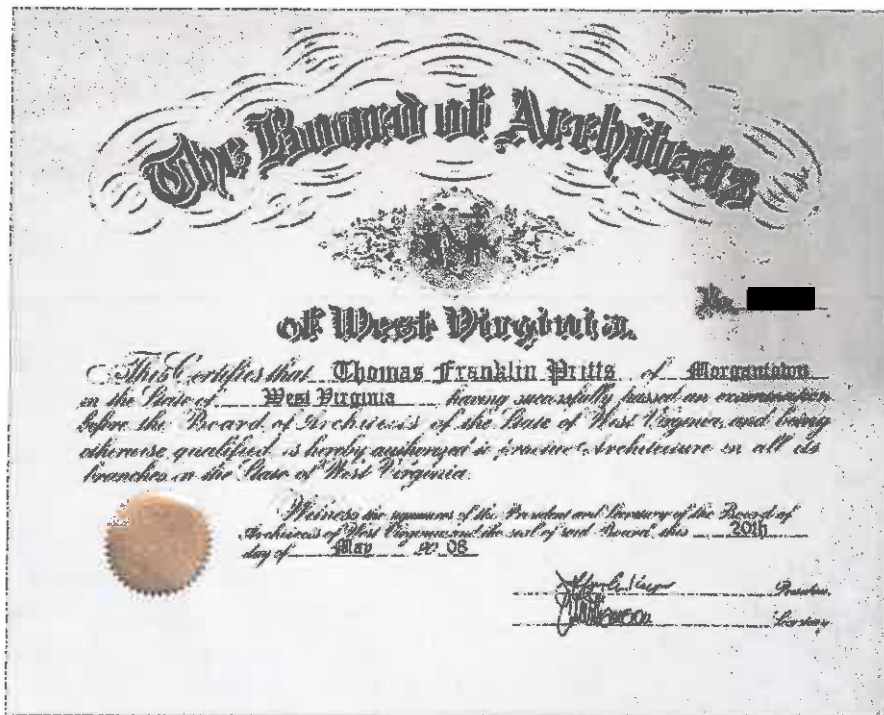 The Board of Architects
of West Virginia.
No.
This Certifies that Thomas Franklin Pritts of Morgantown
in the State of West Virginia having successfully passed an examination
before the Board of Architects of the State of West Virginia, and being
otherwise qualified, is hereby authorized to practice Architecture in all its
branches in the State of West Virginia.
Witness the signatures of the President and Secretary of the Board of
Architects of West Virginia and the seal of said Board, this 20th
day of May 08
President.
Secretary.